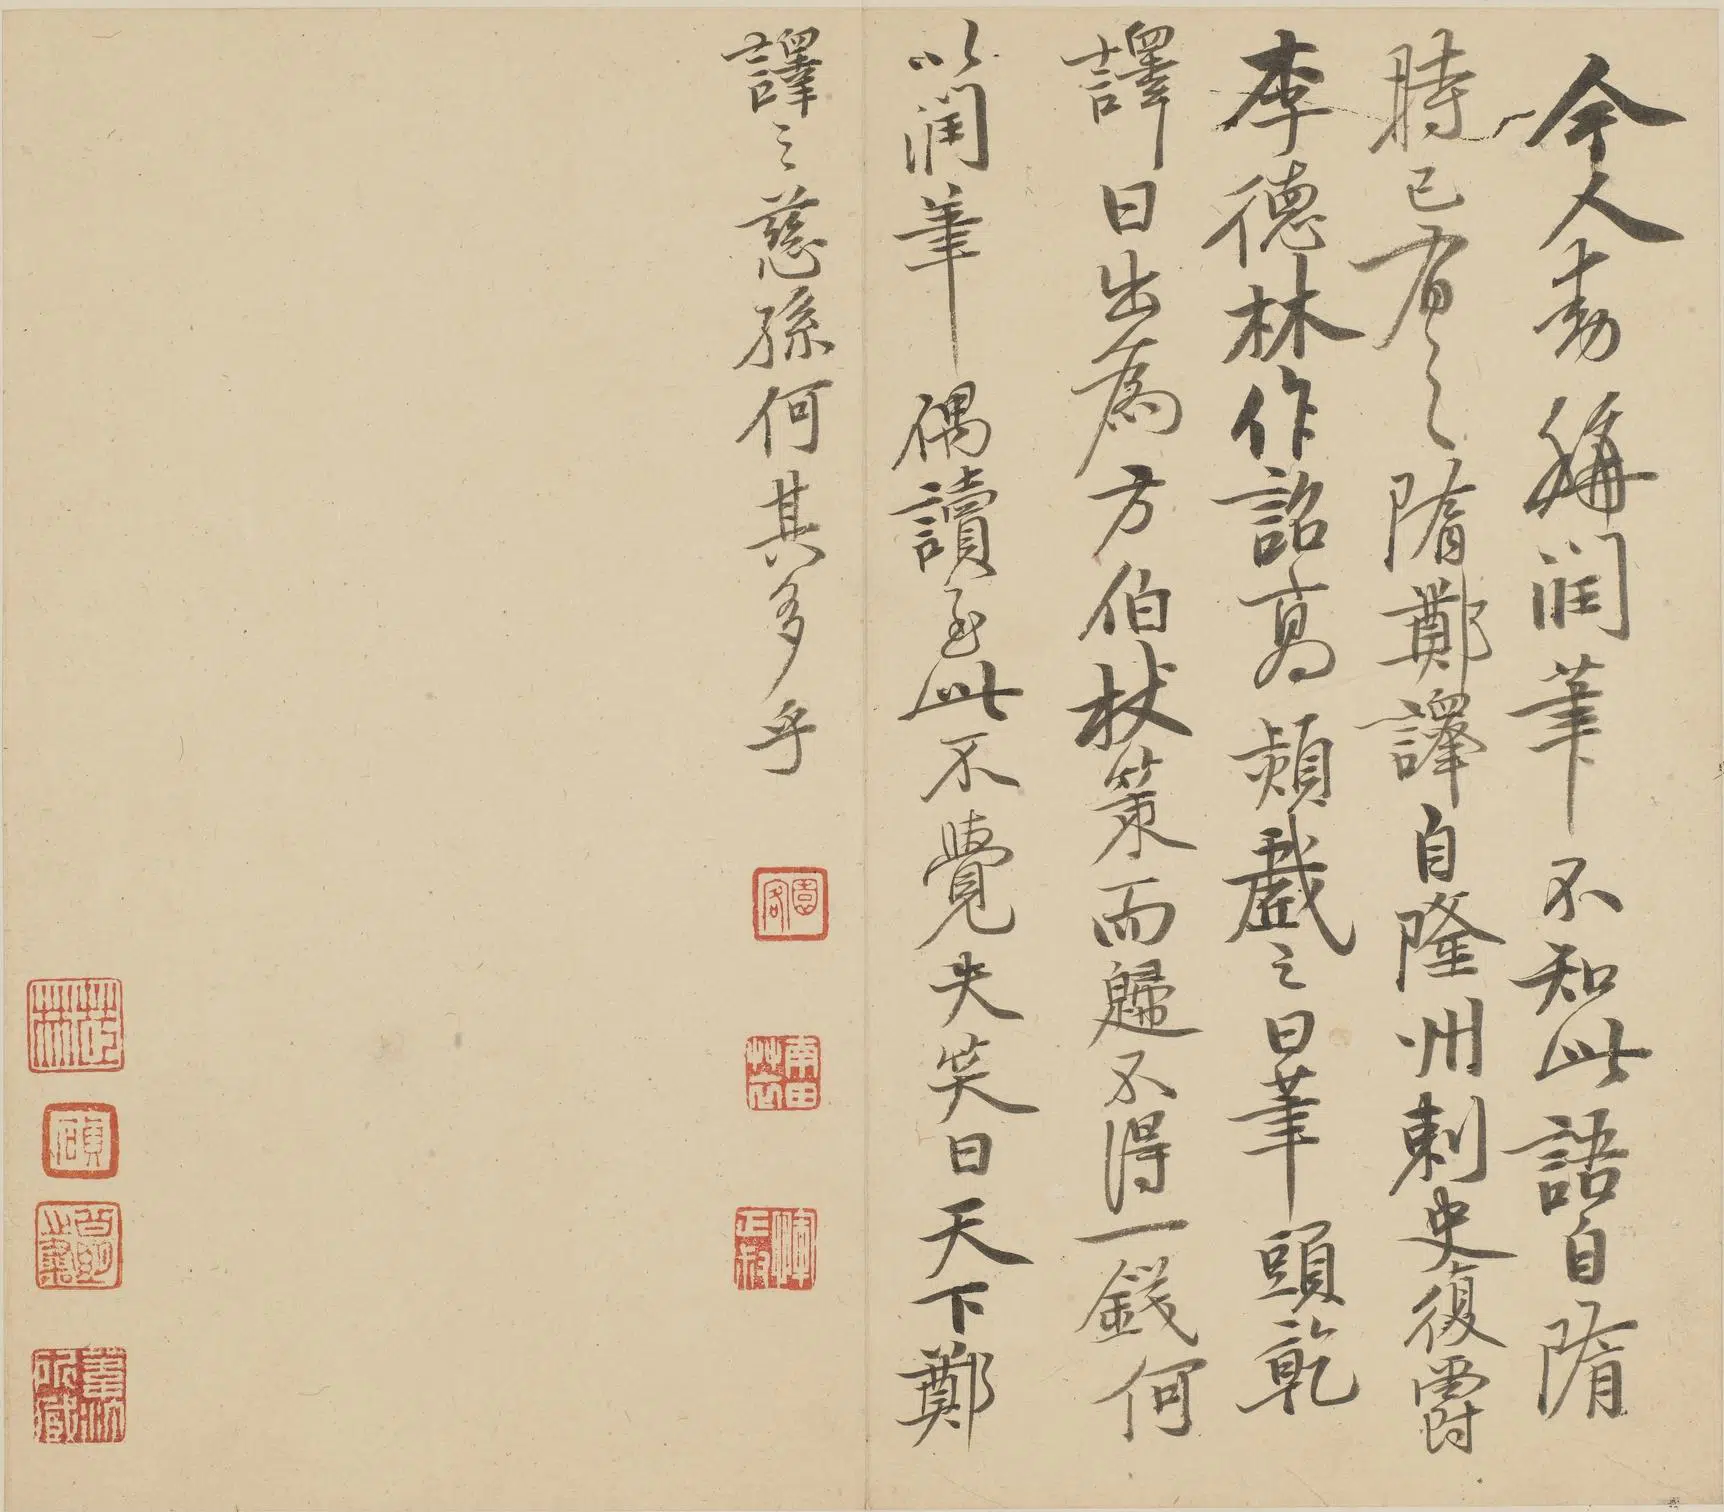 今人動稱润筆不知此語自隋
時已有之隋鄭譯自隆州刺史復爵
李德林作詔高熲戲之曰筆頭乾
譯曰出為方伯杖策而歸不得一錢何
以润筆偶讀至此不覺失笑曰天下鄭
譯之慈孫何其多乎
園客